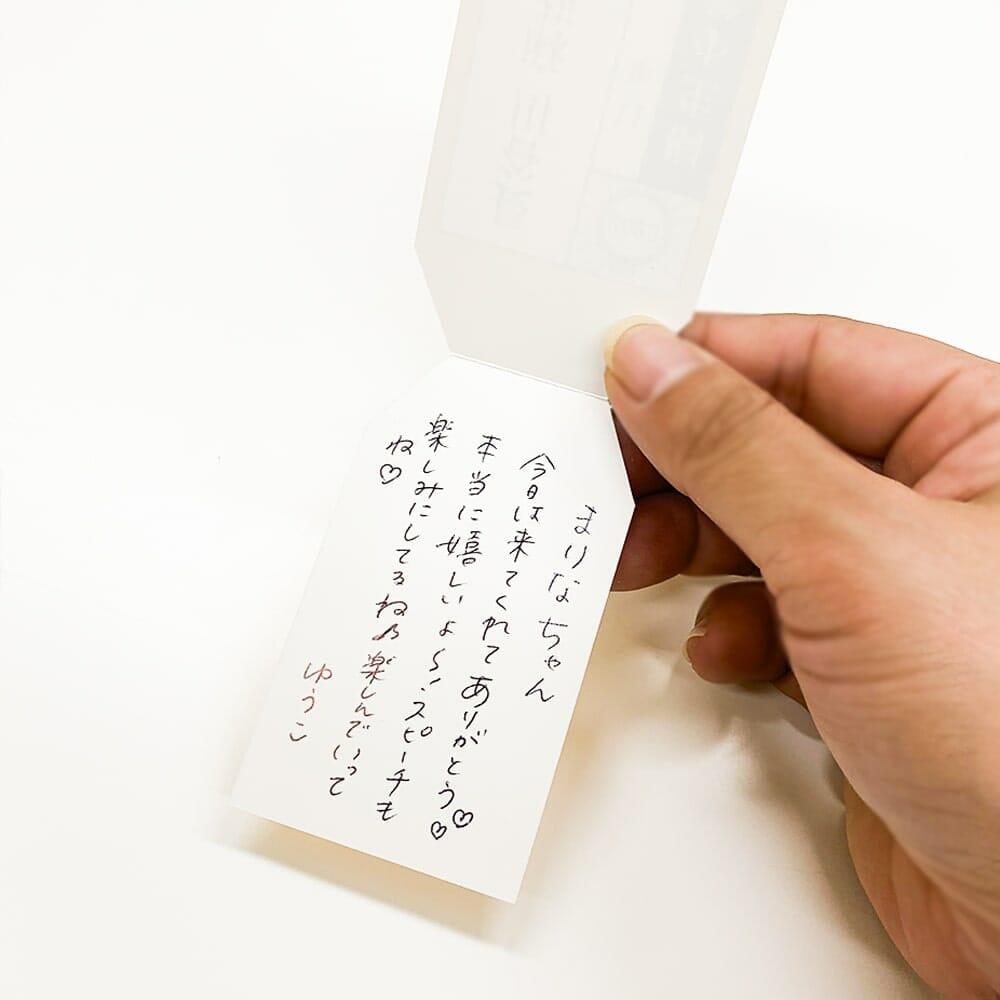 まりなちゃん
今日は来てくれてありがとう♡
本当に嬉しいよ〜!スピーチも
楽しみにしてるね♪楽しんでいって
ね♡
ゆうこ